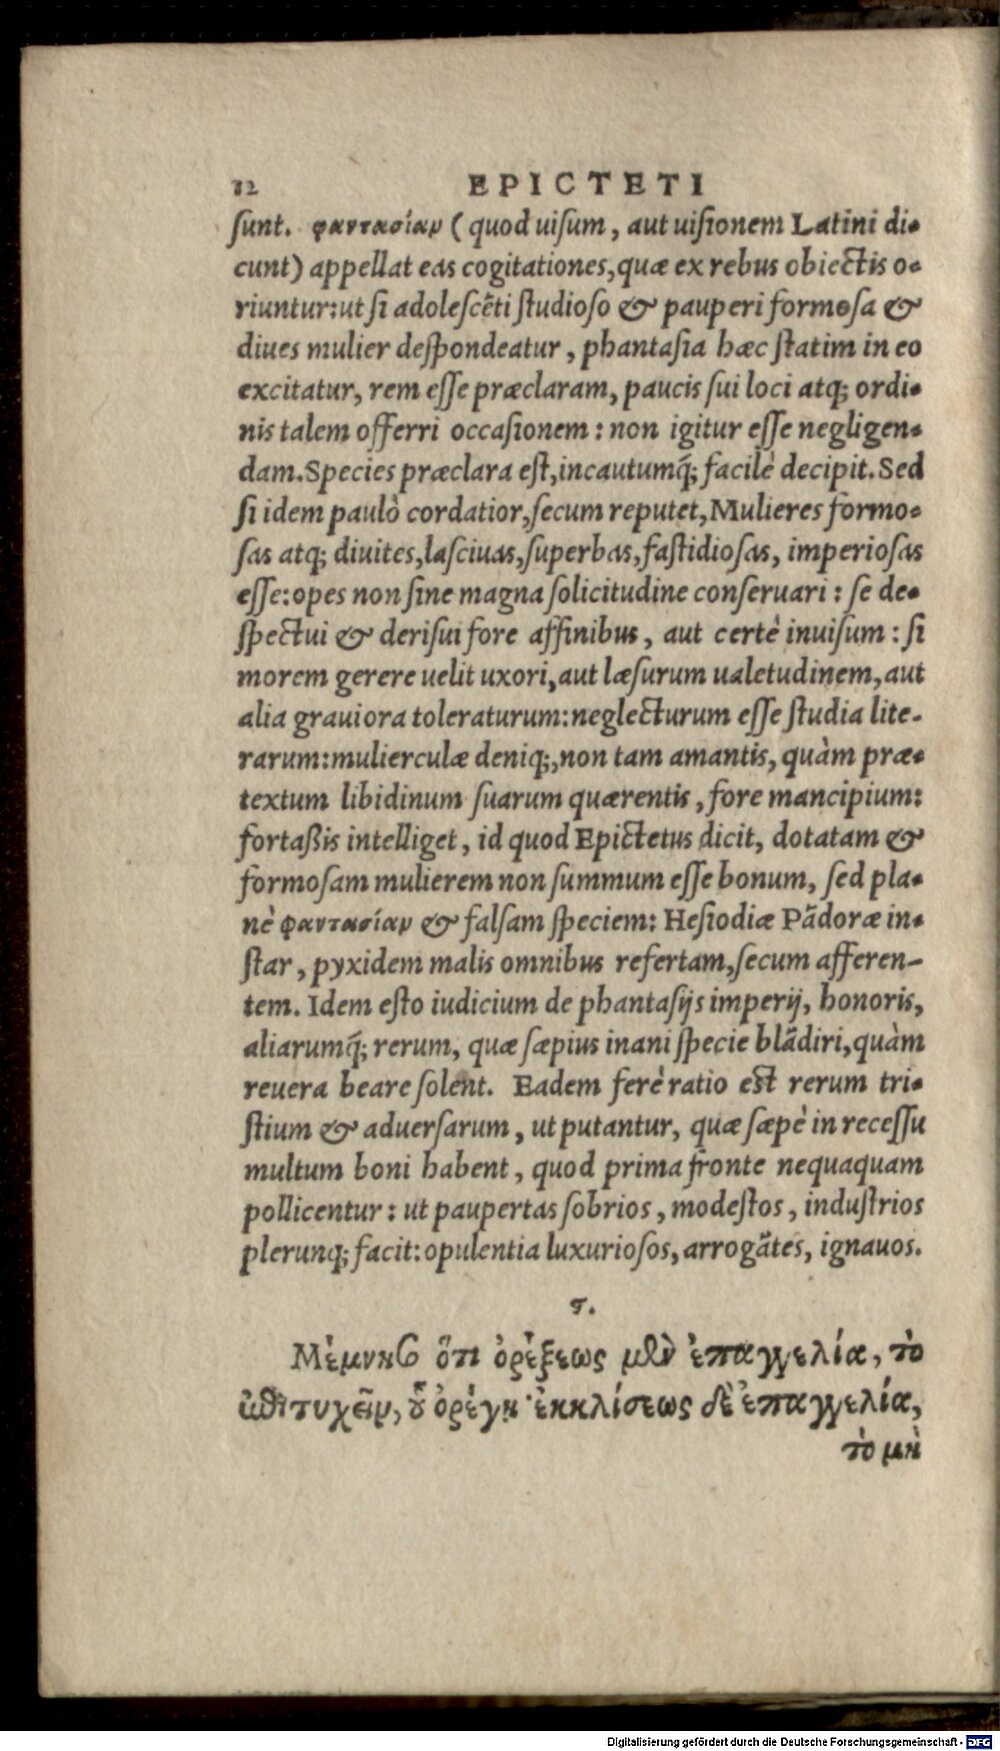 12 EPICTETI
sunt. φαντασίαν (quod uisum, aut uisionem Latini di-
cunt) appellat eas cogitationes, quæ ex rebus obiectis o-
riuntur: ut si adolescẽti studioso & pauperi formosa &
diues mulier despondeatur, phantasia hæc statim in eo
excitatur, rem esse præclaram, paucis sui loci atq; ordi-
nis talem offerri occasionem: non igitur esse negligen-
dam. Species præclara est, incautumq́; facilè decipit. Sed
si idem paulò cordatior, secum reputet, Mulieres formo-
sas atq; diuites, lasciuas, superbas, fastidiosas, imperiosas
esse: opes non sine magna solicitudine conseruari: se de-
spectui & derisui fore affinibus, aut certè inuisum: si
morem gerere uelit uxori, aut læsurum ualetudinem, aut
alia grauiora toleraturum: neglecturum esse studia lite-
rarum: mulierculæ deniq;, non tam amantis, quàm præ-
textum libidinum suarum quærentis, fore mancipium:
fortaßis intelliget, id quod Epictetus dicit, dotatam &
formosam mulierem non summum esse bonum, sed pla-
nè φαντασίαν & falsam speciem: Hesiodiæ Pãdoræ in-
star, pyxidem malis omnibus refertam, secum afferen-
tem. Idem esto iudicium de phantasijs imperij, honoris,
aliarumq́; rerum, quæ sæpius inani specie blãdiri, quàm
reuera beare solent. Eadem ferè ratio est rerum tri-
stium & aduersarum, ut putantur, quæ sæpè in recessu
multum boni habent, quod prima fronte nequaquam
pollicentur: ut paupertas sobrios, modestos, industrios
plerunq; facit: opulentia luxuriosos, arrogãtes, ignauos.
ϛ.
Μέμνησο ὅτι ὀρέξεως μὲν ἐπαγγελία, τὸ
ἐπιτυχεῖν, οὗ ὀρέγῃ· ἐκκλίσεως δὲ ἐπαγγελία,
τὸ μὴ
Digitalisierung gefördert durch die Deutsche Forschungsgemeinschaft - DFG